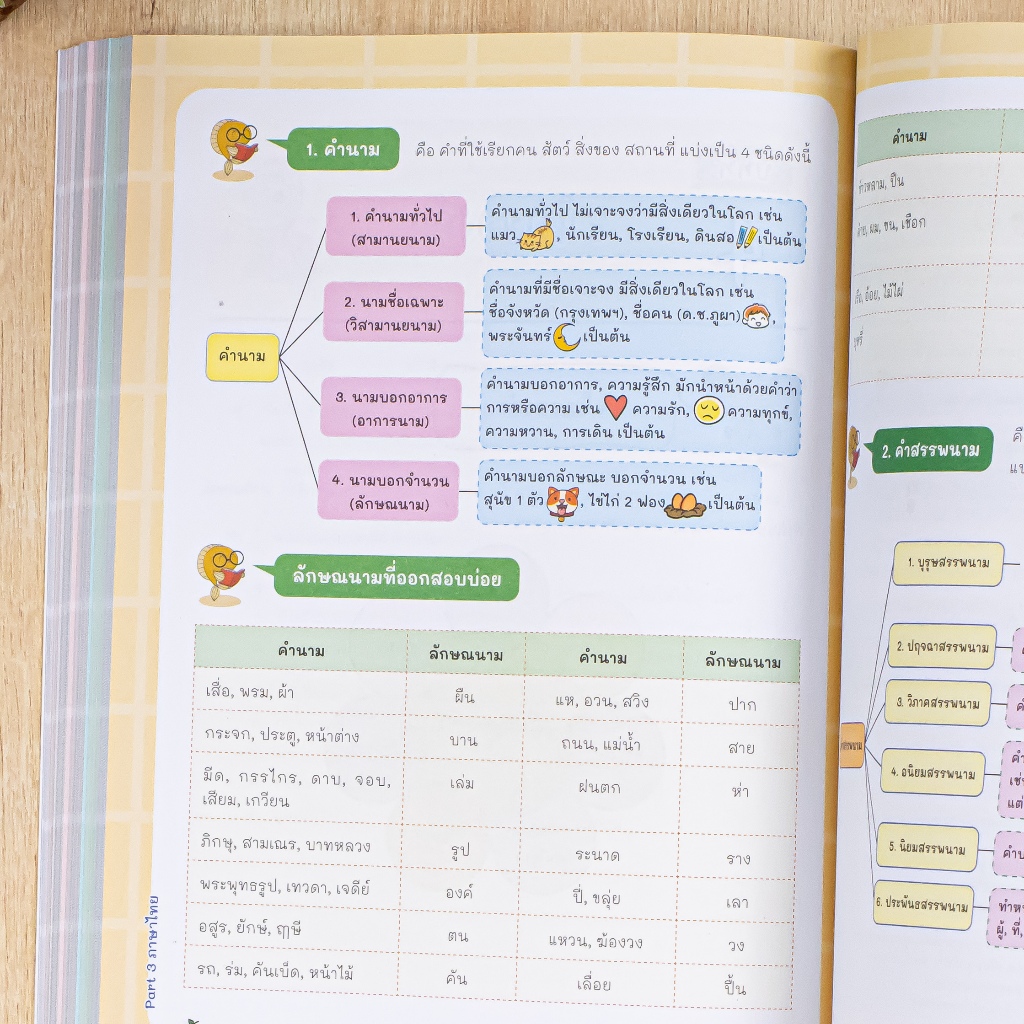 1. คำนาม
คือ คำที่ใช้เรียกคน สัตว์ สิ่งของ สถานที่ แบ่งเป็น 4 ชนิดดังนี้
คำนาม
1. คำนามทั่วไป
(สามานยนาม)
คำนามทั่วไป ไม่เจาะจงว่ามีสิ่งเดียวในโลก เช่น
แมว , นักเรียน, โรงเรียน, ดินสอ เป็นต้น
2. นามชื่อเฉพาะ
(วิสามานยนาม)
คำนามที่มีชื่อเจาะจง มีสิ่งเดียวในโลก เช่น
ชื่อจังหวัด (กรุงเทพฯ), ชื่อคน (ด.ช.ภูผา) ,
พระจันทร์ เป็นต้น
3. นามบอกอาการ
(อาการนาม)
คำนามบอกอาการ, ความรู้สึก มักนำหน้าด้วยคำว่า
การหรือความ เช่น ความรัก, ความทุกข์,
ความหวาน, การเดิน เป็นต้น
4. นามบอกจำนวน
(ลักษณนาม)
คำนามบอกลักษณะ บอกจำนวน เช่น
สุนัข 1 ตัว , ไข่ไก่ 2 ฟอง เป็นต้น
ลักษณนามที่ออกสอบบ่อย
คำนาม ลักษณนาม คำนาม ลักษณนาม
เสื่อ, พรม, ผ้า ผืน แห, อวน, สวิง ปาก
กระจก, ประตู, หน้าต่าง บาน ถนน, แม่น้ำ สาย
มีด, กรรไกร, ดาบ, จอบ, เล่ม ฝนตก ห่า
เสียม, เกวียน
ภิกษุ, สามเณร, บาทหลวง รูป ระนาด ราง
พระพุทธรูป, เทวดา, เจดีย์ องค์ ปี่, ขลุ่ย เลา
อสูร, ยักษ์, ฤๅษี ตน แหวน, ฆ้องวง วง
รถ, ร่ม, คันเบ็ด, หน้าไม้ คัน เลื่อย ปื้น
Part 3 ภาษาไทย
คำนาม
ปืน
ผม, ขน, เชือก
อ้อย, ไม้ไผ่
2. คำสรรพนาม
1. บุรุษสรรพนาม
2. ปฤจฉาสรรพนาม
3. วิภาคสรรพนาม
4. อนิยมสรรพนาม
5. นิยมสรรพนาม
6. ประพันธสรรพนาม
ผู้, ที่,